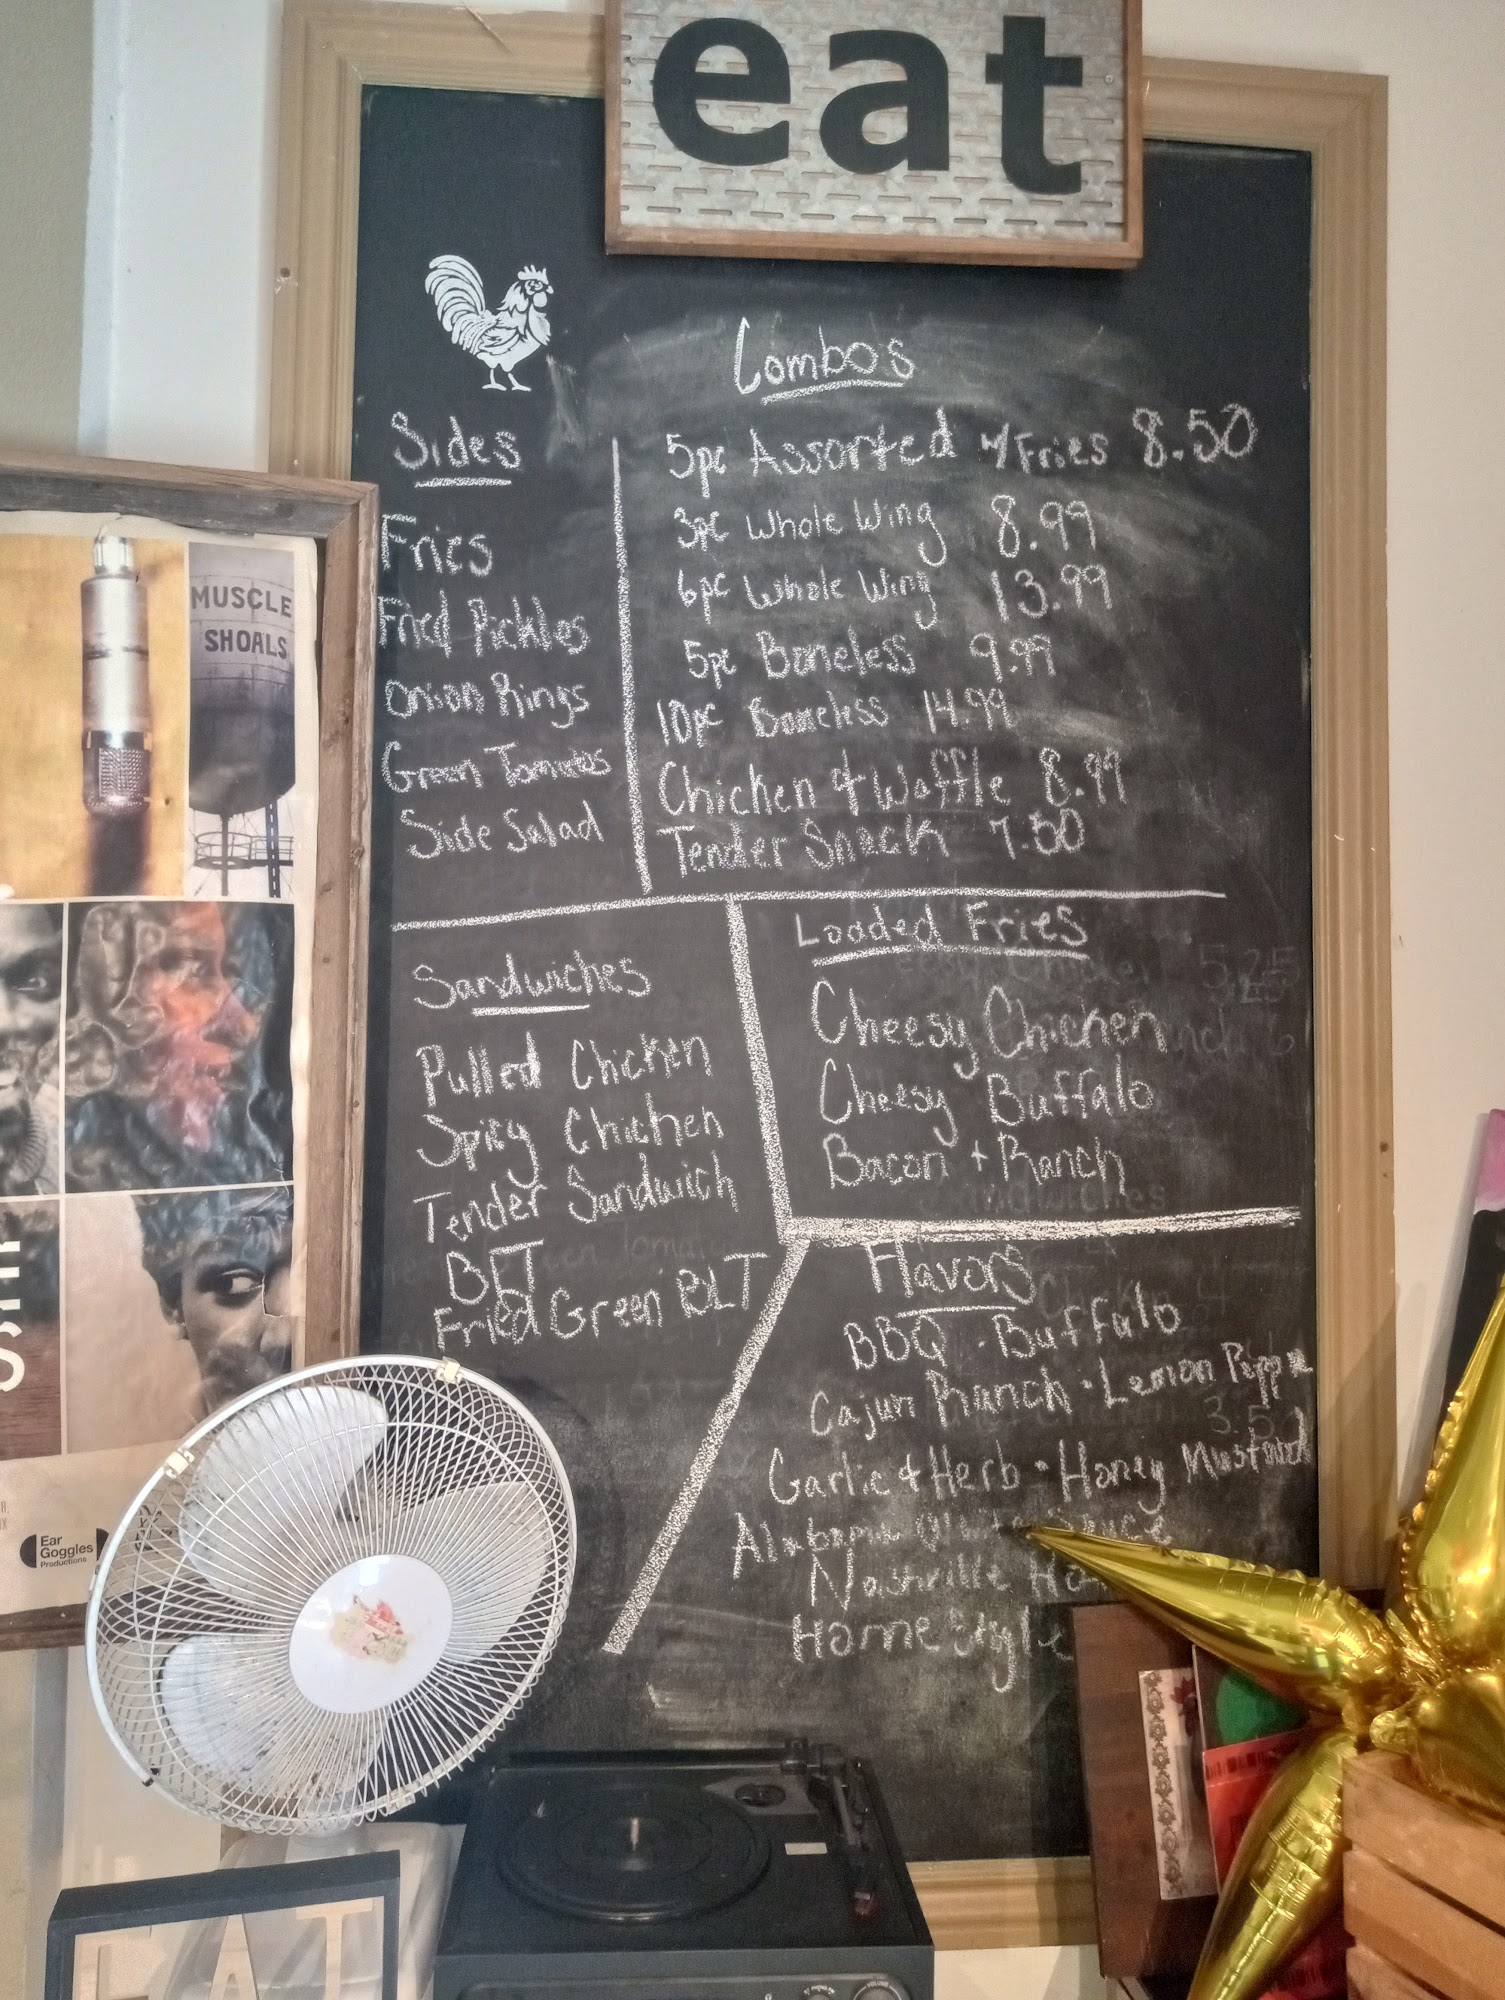 eat
Combo's
5pc Assorted w/Fries 8.50
3pc Whole Wing 8.99
6pc Whole Wing 13.99
5pc Boneless 9.99
10pc Boneless 14.99
Chicken & Waffle 8.99
Tender Snack 7.50
Sides
Fries
Fried Pickles
Onion Rings
Green Tomatos
Side Salad
Sandwiches
Pulled Chicken
Spicy Chicken
Tender Sandwich
BLT
Fried Green BLT
Loaded Fries
Cheesy Chicken
Cheesy Buffalo
Bacon + Ranch
5.25
Flavors
BBQ · Buffalo
Cajun Ranch · Lemon Peppe
3.5
Garlic & Herb · Honey Mustard
Alabama White Sauce
Nashville
Home Style
MUSCLE
SHOALS
Ear
Goggles
Productions
EAT